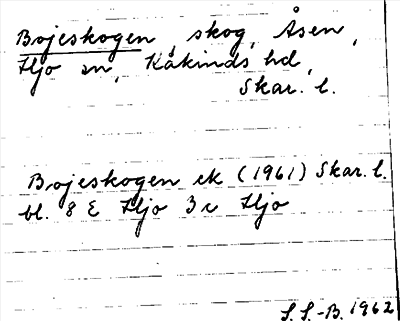 Bojeskogen, skog, Åsen,
Hjo sn, Kåkinds hd,
Skar. l.
Bojeskogen ek (1961) Skar. l.
bl. 8 E Hjo 3 c Hjo
S.S.-B. 1962